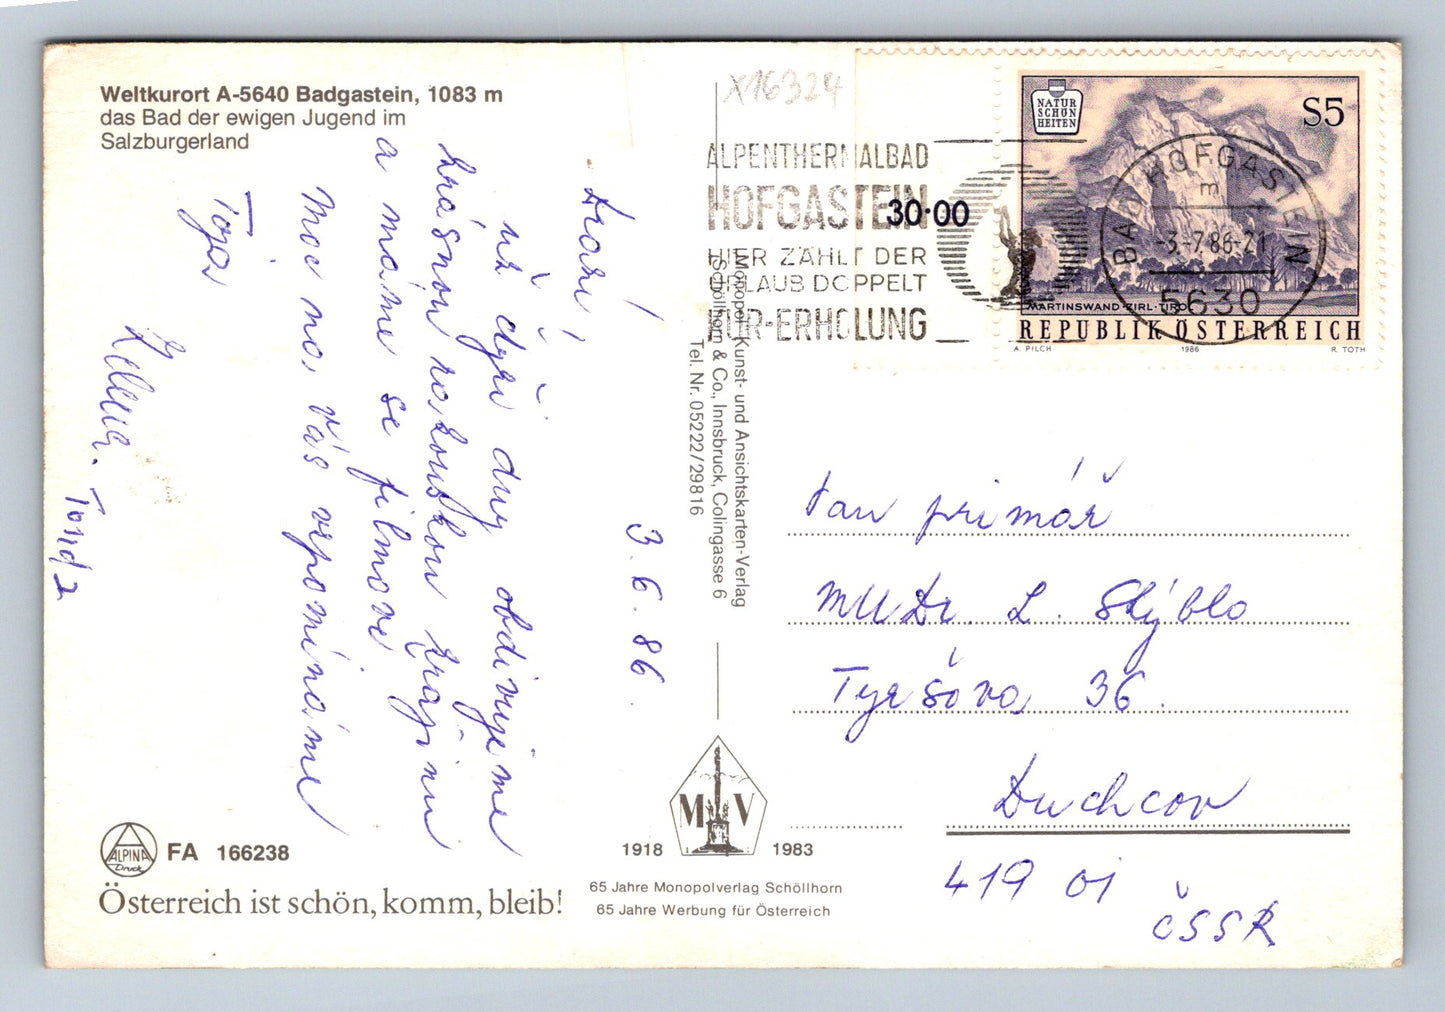 Weltkurort A-5640 Badgastein, 1083 m
das Bad der ewigen Jugend im
Salzburgerland
3. 6. 86.
Drazí,
už čtyři dny obdivujeme
krásnou rakouskou krajinu
a máme se filmově
Moc na Vás vzpomínáme
Toja
x16324
ALPENTHERMALBAD
HOFGASTEIN
HIER ZÄHLT DER
URLAUB DOPPELT
KUR-ERHOLUNG
30·00
NATUR
SCHÖN
HEITEN
S5
BAD HOFGASTEIN
m
-3.-7.86-21
5630
MARTINSWAND·ZIRL·TIROL
REPUBLIK ÖSTERREICH
A. PILCH 1986 R. TOTH
Monopol, Kunst- und Ansichtskarten-Verlag
Schöllhorn & Co., Innsbruck, Colingasse 6
Tel. Nr. 05222/29816
Pan primář
MUDr. L. Stýblo
Tyršova 36.
Duchcov
419 01
ČSSR
M V
1918 1983
65 Jahre Monopolverlag Schöllhorn
65 Jahre Werbung für Österreich
ALPINA
Druck
FA 166238
Österreich ist schön, komm, bleib!